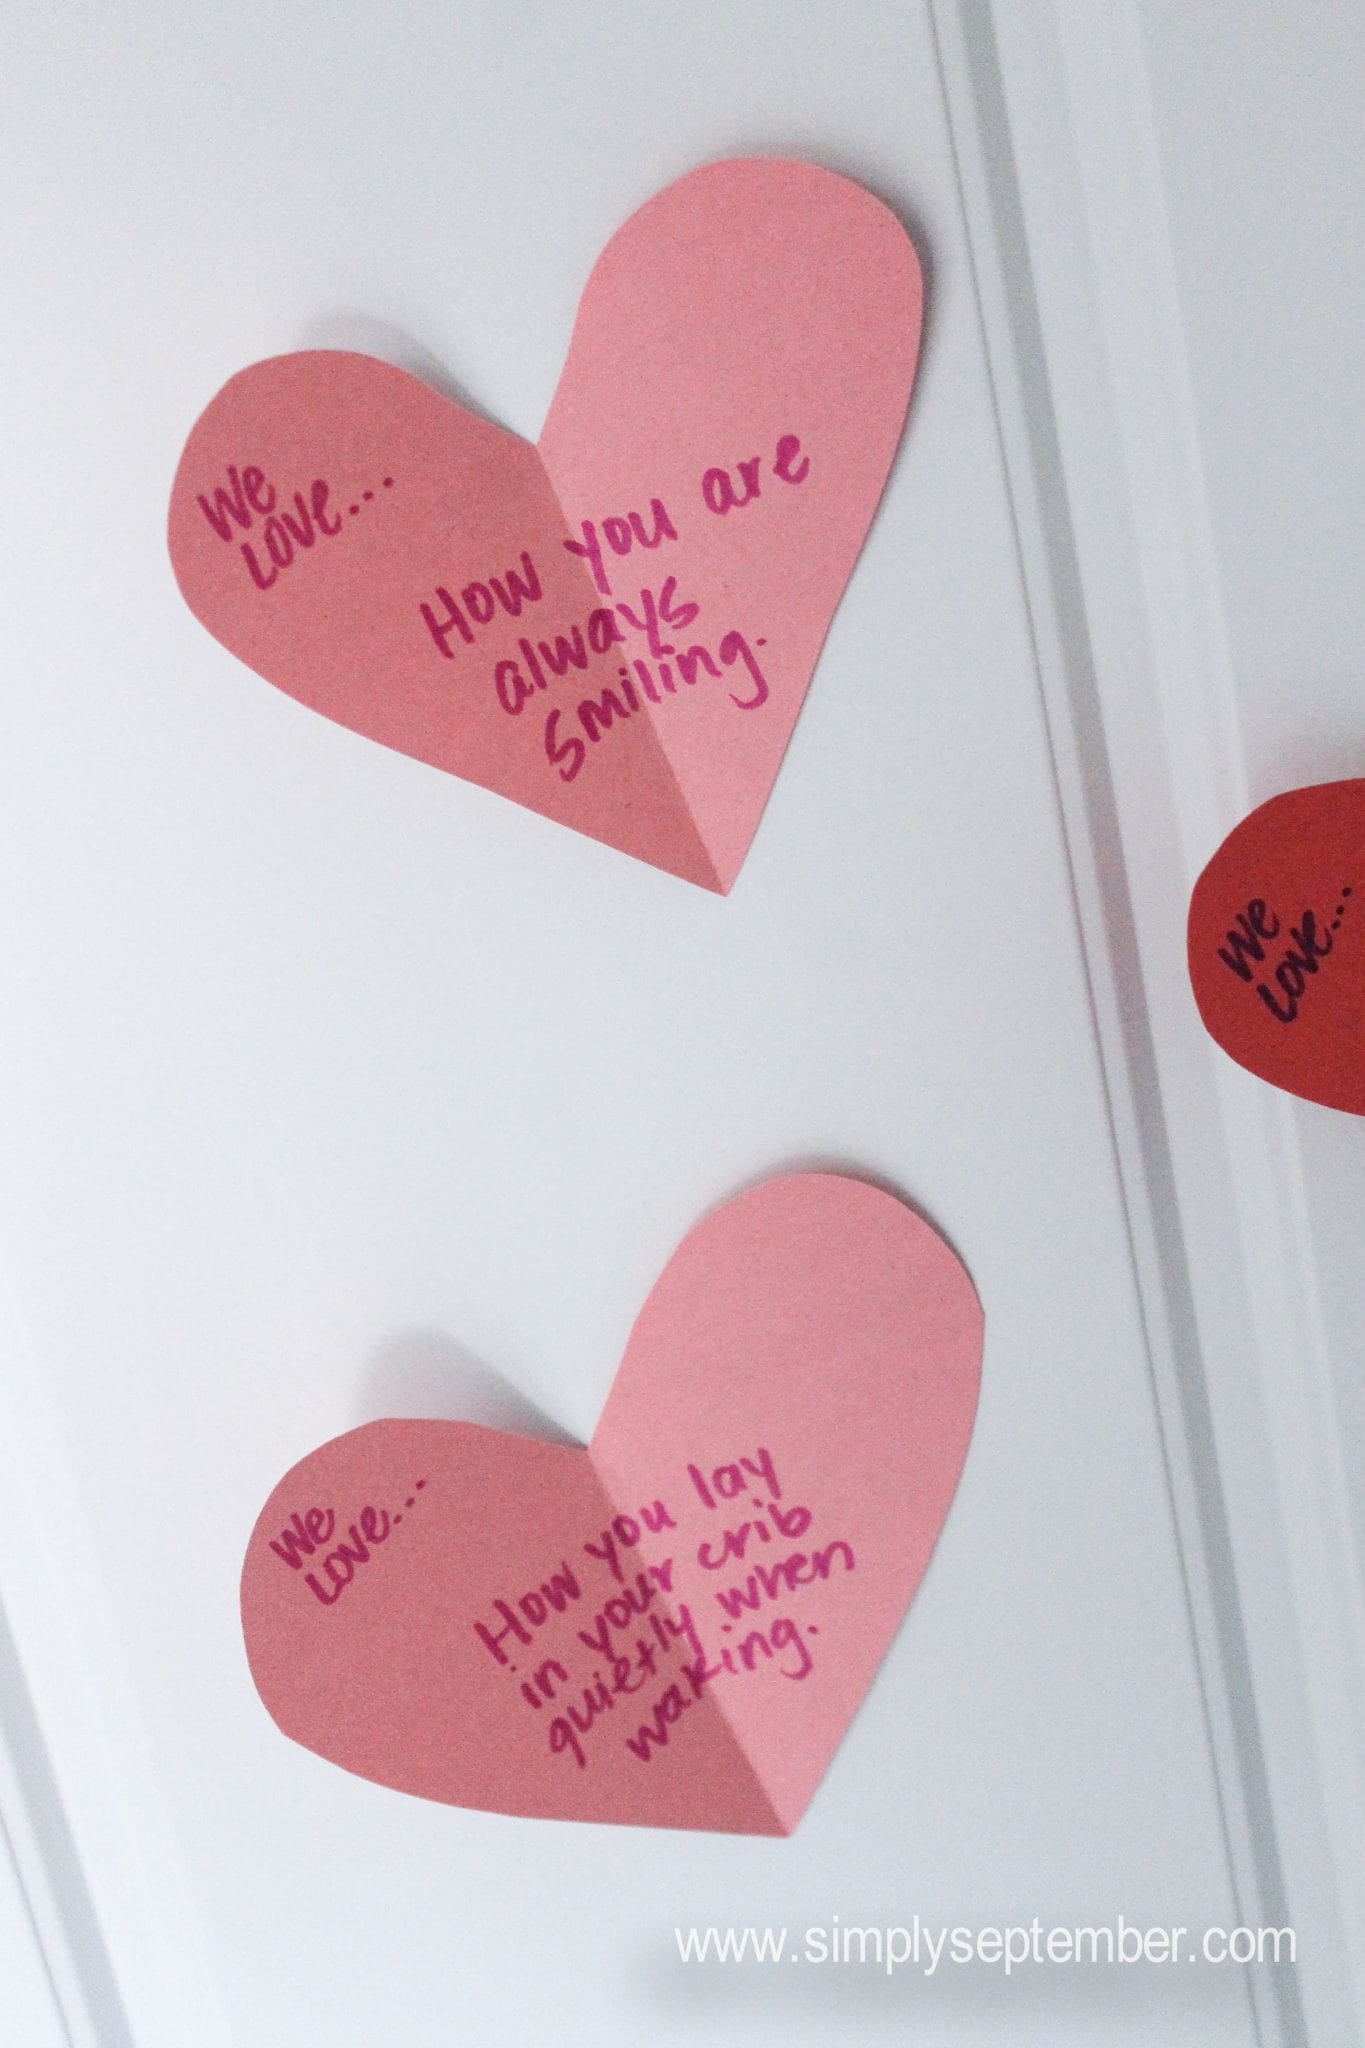 We
Love...
How you are
always
smiling.
We
Love...
We
Love...
How you lay
in your crib
quietly when
waking.
www.simplyseptember.com